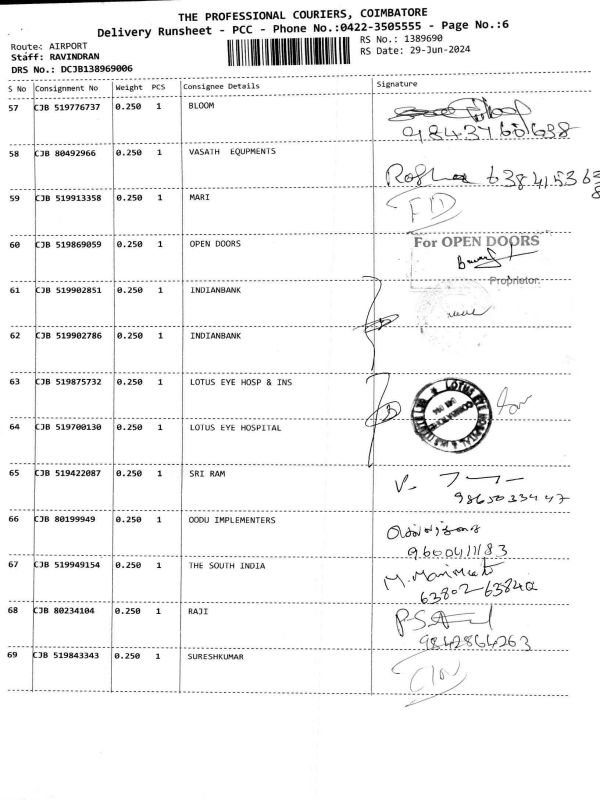 THE PROFESSIONAL COURIERS, COIMBATORE
Delivery Runsheet - PCC - Phone No.:0422-3505555 - Page No.:6
Route: AIRPORT
RS No.: 1389690
Staff: RAVINDRAN
RS Date: 29-Jun-2024
DRS No.: DCJB138969006
S No Consignment No Weight PCS Consignee Details Signature
57 CJB 519776737 0.250 1 BLOOM
58 CJB 80492966 0.250 1 VASATH EQUPMENTS
59 CJB 519913358 0.250 1 MARI
60 CJB 519869059 0.250 1 OPEN DOORS For OPEN DOORS
Proprietor.
61 CJB 519902851 0.250 1 INDIANBANK
62 CJB 519902786 0.250 1 INDIANBANK
63 CJB 519875732 0.250 1 LOTUS EYE HOSP & INS
64 CJB 519700130 0.250 1 LOTUS EYE HOSPITAL
65 CJB 519422087 0.250 1 SRI RAM
9865033447
66 CJB 80199949 0.250 1 OODU IMPLEMENTERS
9600411183
67 CJB 519949154 0.250 1 THE SOUTH INDIA
68 CJB 80234104 0.250 1 RAJI
9842864263
69 CJB 519843343 0.250 1 SURESHKUMAR